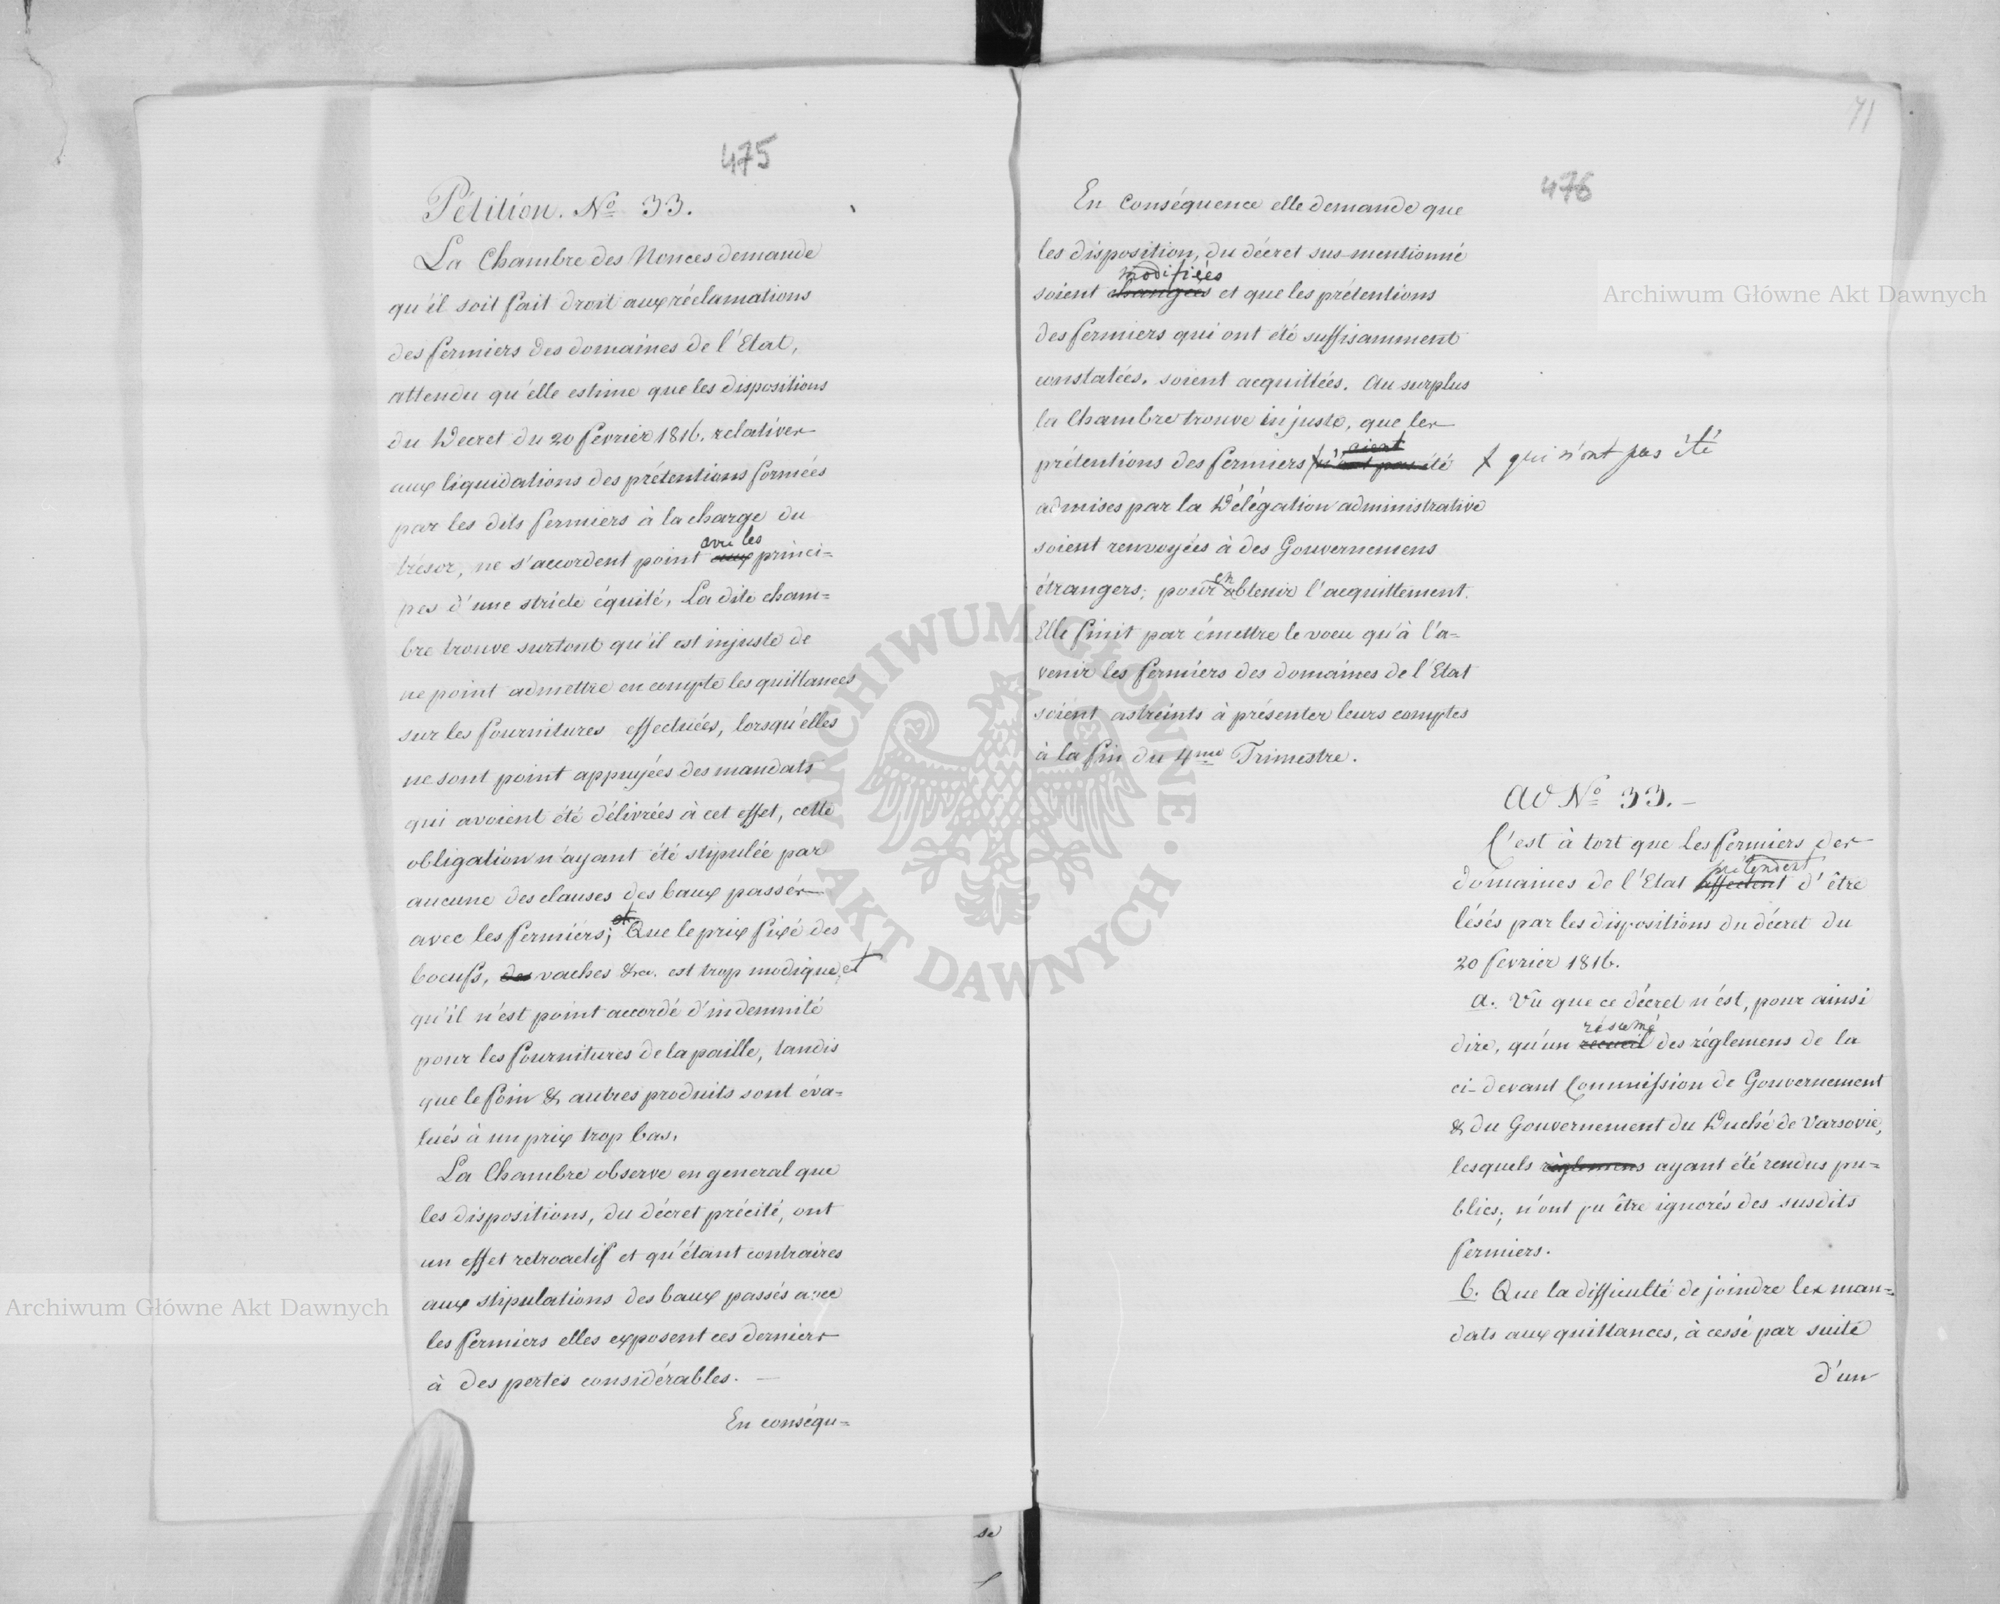 475
Pétition. No 33.
La Chambre des Nonces demande
qu'il soit fait droit aux réclamations
des fermiers des domaines de l'Etat,
attendu qu'elle estime que les dispositions
du Décret du 20 fevrier 1816. relatives
aux liquidations des prétentions formées
par les dits fermiers à la charge du
avec les
trésor, ne s'accordent point aux princi=
pes d'une stricte équité. La dite cham=
bre trouve surtout qu'il est injuste de
ne point admettre en compte les quittances
sur les fournitures effectuées, lorsqu'elles
ne sont point appuyées des mandats
qui avoient été délivrées à cet effet, cette
obligation n'ayant été stipulée par
aucune des clauses des baux passés
avec les fermiers; et Que le prix fixé des
boeufs, des vaches &ca. est trop modique et
qu'il n'est point accordé d'indemnité
pour les fournitures de la paille, tandis
que le foin & autres produits sont éva=
lués à un prix trop bas.
La Chambre observe en general que
les dispositions, du décret précité, ont
un effet retroactif et qu'étant contraires
aux stipulations des baux passés avec
les fermiers elles exposent ces derniers
à des pertes considérables. —
En conséqu=
71
476
En conséquence elle demande que
les disposition, du décret sus-mentionné
modifiées
soient changées et que les prétentions
des fermiers qui ont été suffisamment
constatées, soient acquittées. Au surplus
la Chambre trouve injuste, que les
prétentions des fermiers n'ont pas été qui n'ont pas été
admises par la Délégation administrative
soient renvoyées à des Gouvernemens
étrangers; pour en obtenir l'acquittement.
Elle finit par émettre le voeu qu'à l'a=
venir les fermiers des domaines de l'Etat
soient astreints à présenter leurs comptes
à la fin du 4me Trimestre.
Ad No 33. —
C'est à tort que les fermiers des
prétendent
domaines de l'Etat affectent d'être
lésés par les dispositions du décret du
20 fevrier 1816.
a. Vû que ce décret n'est, pour ainsi
résumé
dire, qu'un recueil des réglemens de la
ci-devant Commission de Gouvernement
& du Gouvernement du Duché de Varsovie,
lesquels réglemens ayant été rendus pu=
blics; n'ont pu être ignorés des susdits
fermiers.
b. Que la difficulté de joindre les man=
dats aux quittances, à cessé par suite
d'un
se
Archiwum Główne Akt Dawnych
Archiwum Główne Akt Dawnych
ARCHIWUM GŁÓWNE · AKT DAWNYCH ·